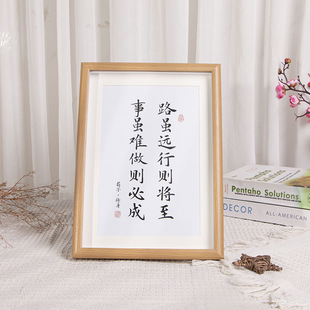 路虽远行则将至
事虽难做则必成
荀子·修身
Pentaho Solutions
DECOR
ALL-AMERICAN